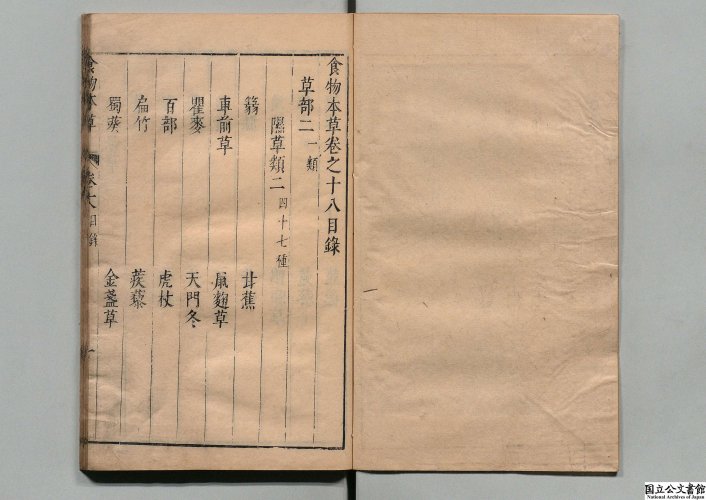 食物本草卷之十八目錄
草部二 一類
隰草類二 四十七種
蕛 甘蕉
車前草 鼠麴草
瞿麥 天門冬
百部 虎杖
扁竹 蒺藜
蜀葵 金盞草
食物本草 卷十八 目錄 一
国立公文書館
National Archives of Japan